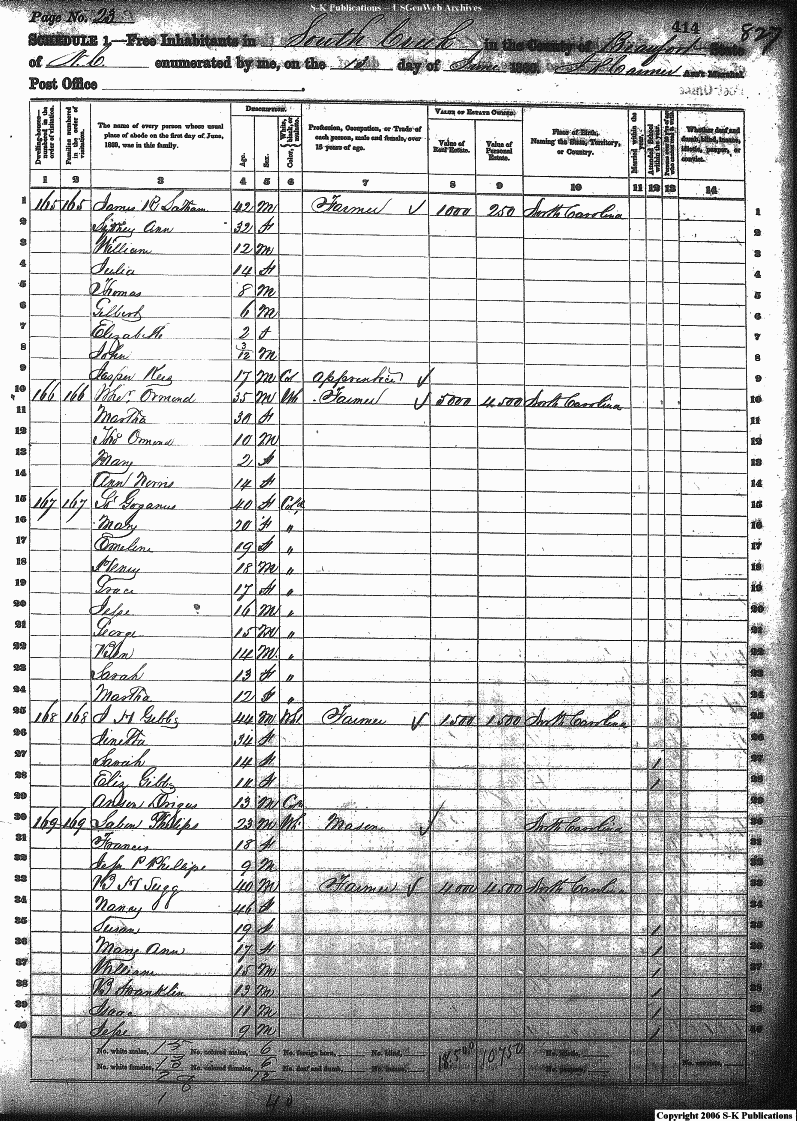 S-K Publications – USGenWeb Archives
Page No. 23
414
827
SCHEDULE 1.—Free Inhabitants in South Creek in the County of Beaufort State
of N.C. enumerated by me, on the day of June 1860. Ass't Marshal
Post Office
DESCRIPTION.
VALUE OF ESTATE OWNED.
Dwelling-houses— numbered in the order of visitation.
Families numbered in the order of visitation.
The name of every person whose usual place of abode on the first day of June, 1860, was in this family.
Age.
Sex.
Color, White, black, or mulatto.
Profession, Occupation, or Trade of each person, male and female, over 15 years of age.
Value of Real Estate.
Value of Personal Estate.
Place of Birth, Naming the State, Territory, or Country.
Married within the year.
Attended School within the year.
Whether deaf and dumb, blind, insane, idiotic, pauper, or convict.
1 2 3 4 5 6 7 8 9 10 11 12 13 14
1 165 165 James R Satham 42 M Farmer ✓ 1000 250 North Carolina 1
2 Sydney Ann 32 f 2
3 William 12 M 3
4 Julia 14 f 4
5 Thomas 8 M 5
6 Gilbert 6 M 6
7 Elizabeth 2 f 7
8 John 3/12 M 8
9 Jasper Keis 17 M Col apprentice ✓ 9
10 166 166 Ormond 35 M Wh Farmer ✓ 5000 4500 North Carolina 10
11 Martha 30 f 11
12 Tho Ormond 10 M 12
13 Mary 2 f 13
14 Ann Norris 14 f 14
15 167 167 Goganus 40 f Cold 15
16 Mary 20 f " 16
17 Emeline 19 f " 17
18 Henry 18 M " 18
19 Grace 17 f " 19
20 Jesse 16 M " 20
21 George 15 M " 21
22 Ben 14 M " 22
23 Sarah 13 f " 23
24 Martha 12 f " 24
25 168 168 J H Gibbs 44 M Wht Farmer ✓ 1500 1500 North Carolina 25
26 Sinetta 34 f 26
27 Sarah 14 f 1 27
28 Eliz Gibbs 11 f 1 28
29 Anson 13 M Col 29
30 169 169 Laben Philips 23 M Wh Mason ✓ North Carolina 30
31 Frances 18 f 31
32 Jesse P Phillips 9 M 32
33 B H Sugg 40 M Farmer ✓ 4000 4500 North Carolina 33
34 Nancy 46 f 34
35 Susan 19 f 1 35
36 Mary Ann 17 f 1 36
37 William 15 M 1 37
38 B Franklin 13 M 1 38
39 Isaac 11 M 1 39
40 Jesse 9 M 1 40
No. white males, 15 No. colored males, 6 No. foreign born, No. blind, 18.500 10750 No. idiotic, No. convicts,
No. white females, 13 No. colored females, 6 No. deaf and dumb, No. insane, No. paupers,
28 12
40
Copyright 2006 S-K Publications